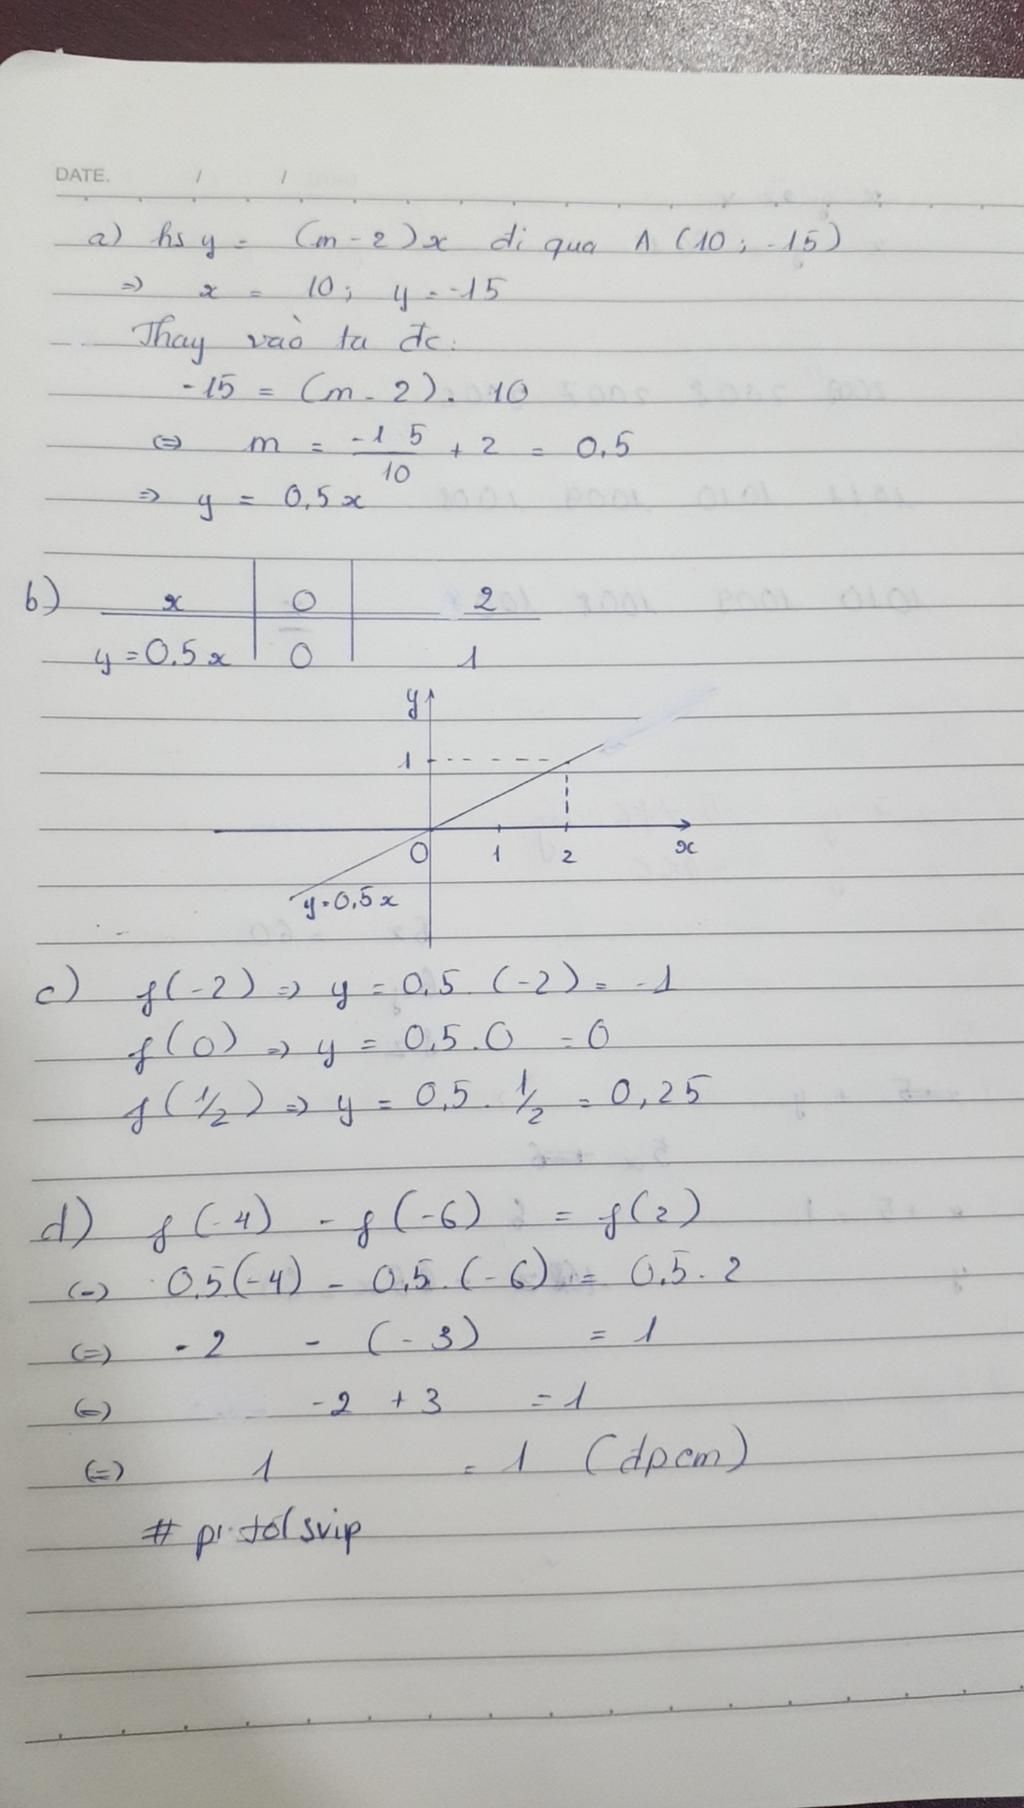 DATE. / /
a) hs y = (m - 2)x đi qua A (10; -15)
=> x = 10; y = -15
Thay vào ta đc:
-15 = (m - 2). 10
<=> m = -15/10 + 2 = 0,5
=> y = 0,5x
b) x 0 2
y = 0,5x 0 1
y
1
O 1 2 x
y=0,5x
c) f(-2) => y = 0,5 . (-2) = -1
f(0) => y = 0,5.0 = 0
f(1/2) => y = 0,5 . 1/2 = 0,25
d) f(-4) - f(-6) = f(2)
(=) 0,5(-4) - 0,5.(-6) = 0,5.2
(=) -2 - (-3) = 1
(=) -2 + 3 = 1
(=) 1 = 1 (dpcm)
#